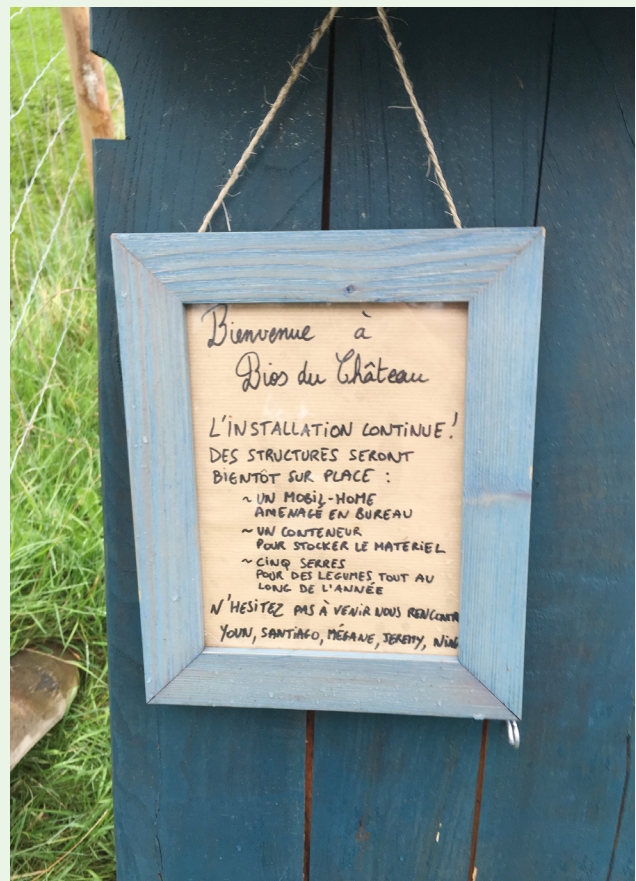 Bienvenue à
Bios du Château
L'INSTALLATION CONTINUE!
DES STRUCTURES SERONT
BIENTÔT SUR PLACE :
~ UN MOBIL-HOME
AMENAGÉ EN BUREAU
~ UN CONTENEUR
POUR STOCKER LE MATERIEL
~ CINQ SERRES
POUR DES LEGUMES TOUT AU
LONG DE L'ANNÉE
N'HESITEZ PAS À VENIR NOUS RENCONTR
YOUN, SANTIAGO, MÉGANE, JEREMY,